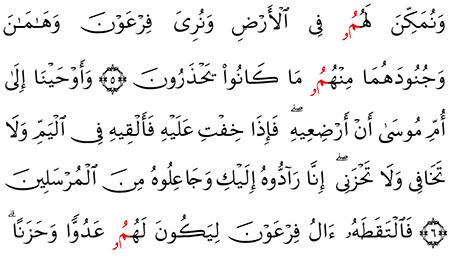 وَنُمَكِّنَ لَهُمُۥ فِي ٱلۡأَرۡضِ وَنُرِيَ فِرۡعَوۡنَ وَهَٰمَٰنَ
وَجُنُودَهُمَا مِنۡهُمُۥ مَا كَانُواْ يَحۡذَرُونَ ۝٥ وَأَوۡحَيۡنَا إِلَىٰٓ
أُمِّ مُوسَىٰٓ أَنۡ أَرۡضِعِيهِۖ فَإِذَا خِفۡتِ عَلَيۡهِ فَأَلۡقِيهِ فِي ٱلۡيَمِّ وَلَا
تَخَافِي وَلَا تَحۡزَنِيٓۖ إِنَّا رَآدُّوهُ إِلَيۡكِ وَجَاعِلُوهُ مِنَ ٱلۡمُرۡسَلِينَ
۝٦ فَٱلۡتَقَطَهُۥٓ ءَالُ فِرۡعَوۡنَ لِيَكُونَ لَهُمُۥ عَدُوّٗا وَحَزَنًاۗ